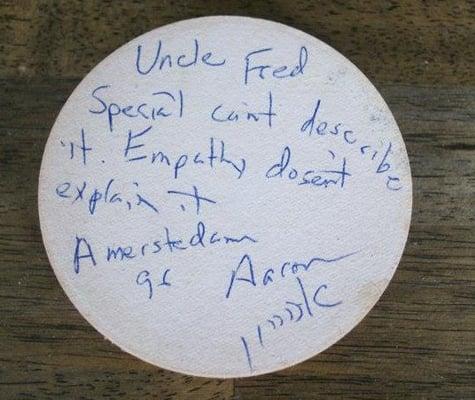 Uncle Fred
Special can't describe
it. Empathy dosen't
explain it
Amerstedam
96 Aaron